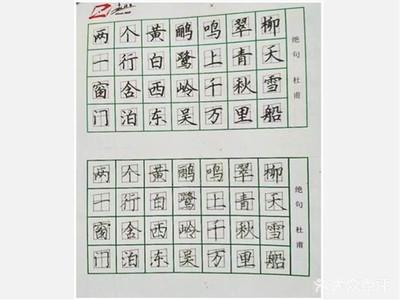 绝句 杜甫
两个黄鹂鸣翠柳
一行白鹭上青天
窗含西岭千秋雪
门泊东吴万里船
绝句 杜甫
两个黄鹂鸣翠柳
一行白鹭上青天
窗含西岭千秋雪
门泊东吴万里船